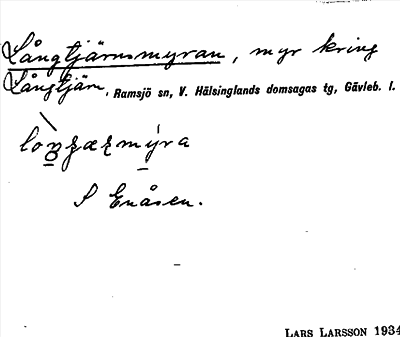 Långtjärnsmyran, myr kring
Långtjärn, Ramsjö sn, V. Hälsinglands domsagas tg, Gävleb. l.
S Enåsen.
LARS LARSSON 1934